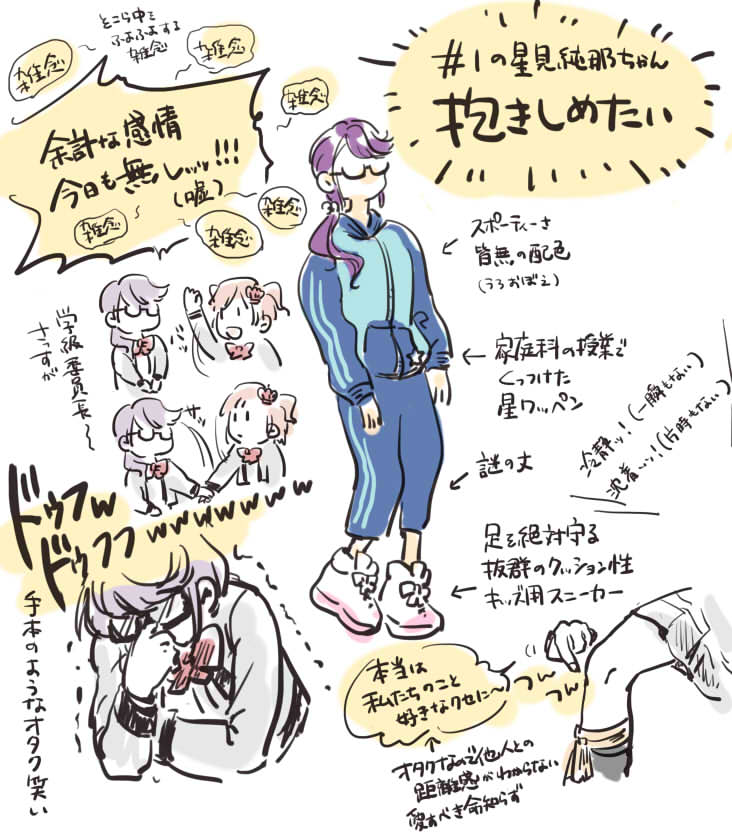 #1の星見純那ちゃん
抱きしめたい
そこら中を
ふよふよする
雑念
雑念
雑念
雑念
余計な感情
今日も無しッッ!!!
(嘘)
雑念
雑念
雑念
スポーティーさ
皆無の配色
(うろおぼえ)
家庭科の授業で
くっつけた
星ワッペン
謎の丈
足を絶対守る
抜群のクッション性
キッズ用スニーカー
冷静ッ…!(一瞬もない)
沈着…ッ!(片時もない)
学級委員長〜
さっすが
サッ
ドゥフw
ドゥフフwwwwwww
手本のようなオタク笑い
本当は
私たちのこと
好きなクセに〜
つん
つん
オタクなので他人との
距離感がわからない
愛すべき命知らず